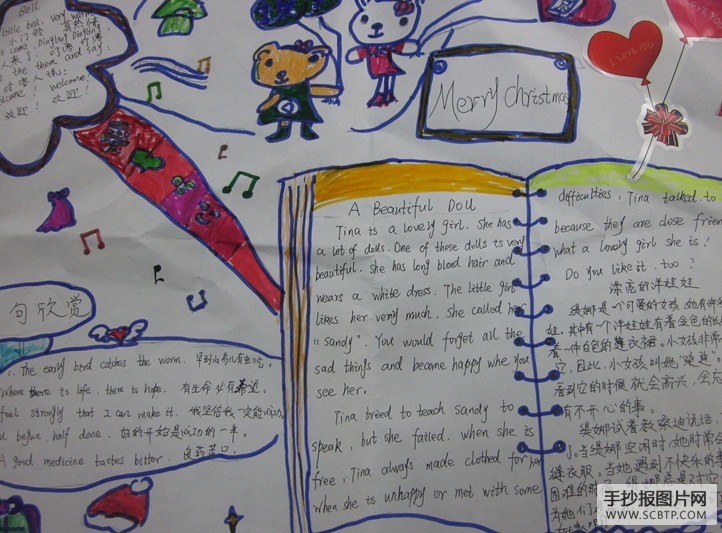 Bell
little bell, very warm
小门铃 真热情
come, Dingling Dingling
人来了 叮铃 叮铃
the them and say:
对客人说:
welcome! welcome!
欢迎! 欢迎!
Merry christmas
I LOVE YOU
A Beautiful Doll
Tina is a lovely girl. She has
a lot of dolls. One of these dolls is very
beautiful. she has long blond hair and
wears a white dress. The little girl
likes her very much. she called her
"sandy". You would forget all the
sad things and became happy whe you
see her.
Tina tried to teach sandy to
speak, but she failed. when she is
free, Tina always made clothed for her
when she is unhappy or met with some
difficulties, Tina talked to
because they are close frien
what a lovely girl she is!
Do you like it, too?
漂亮的洋娃娃
缇娜是一个可爱的女孩,她有许多
娃,其中有一个洋娃娃有着金色的
着一件白色的蓬衣裙。小女孩非常
它,因此,小女孩叫她"桑迪"。
看到它的时候,就会高兴,会忘
有不开心的事。
缇娜试着教桑迪说话,
了。当缇娜空闲时,她时常会
缝衣服。当她遇到不快乐的事
困难的时
为她们
句欣赏
1. The early bird catches the worm. 早到的鸟儿有虫吃。
Where there is life, there is hope. 有生命必有希望。
feel strongly that I can make it. 我坚信我一定能成功
begun, half done. 好的开始是成功的一半。
A good medicine tastes bitter. 良药苦口.
手抄报图片网
WWW.SCBTP.COM